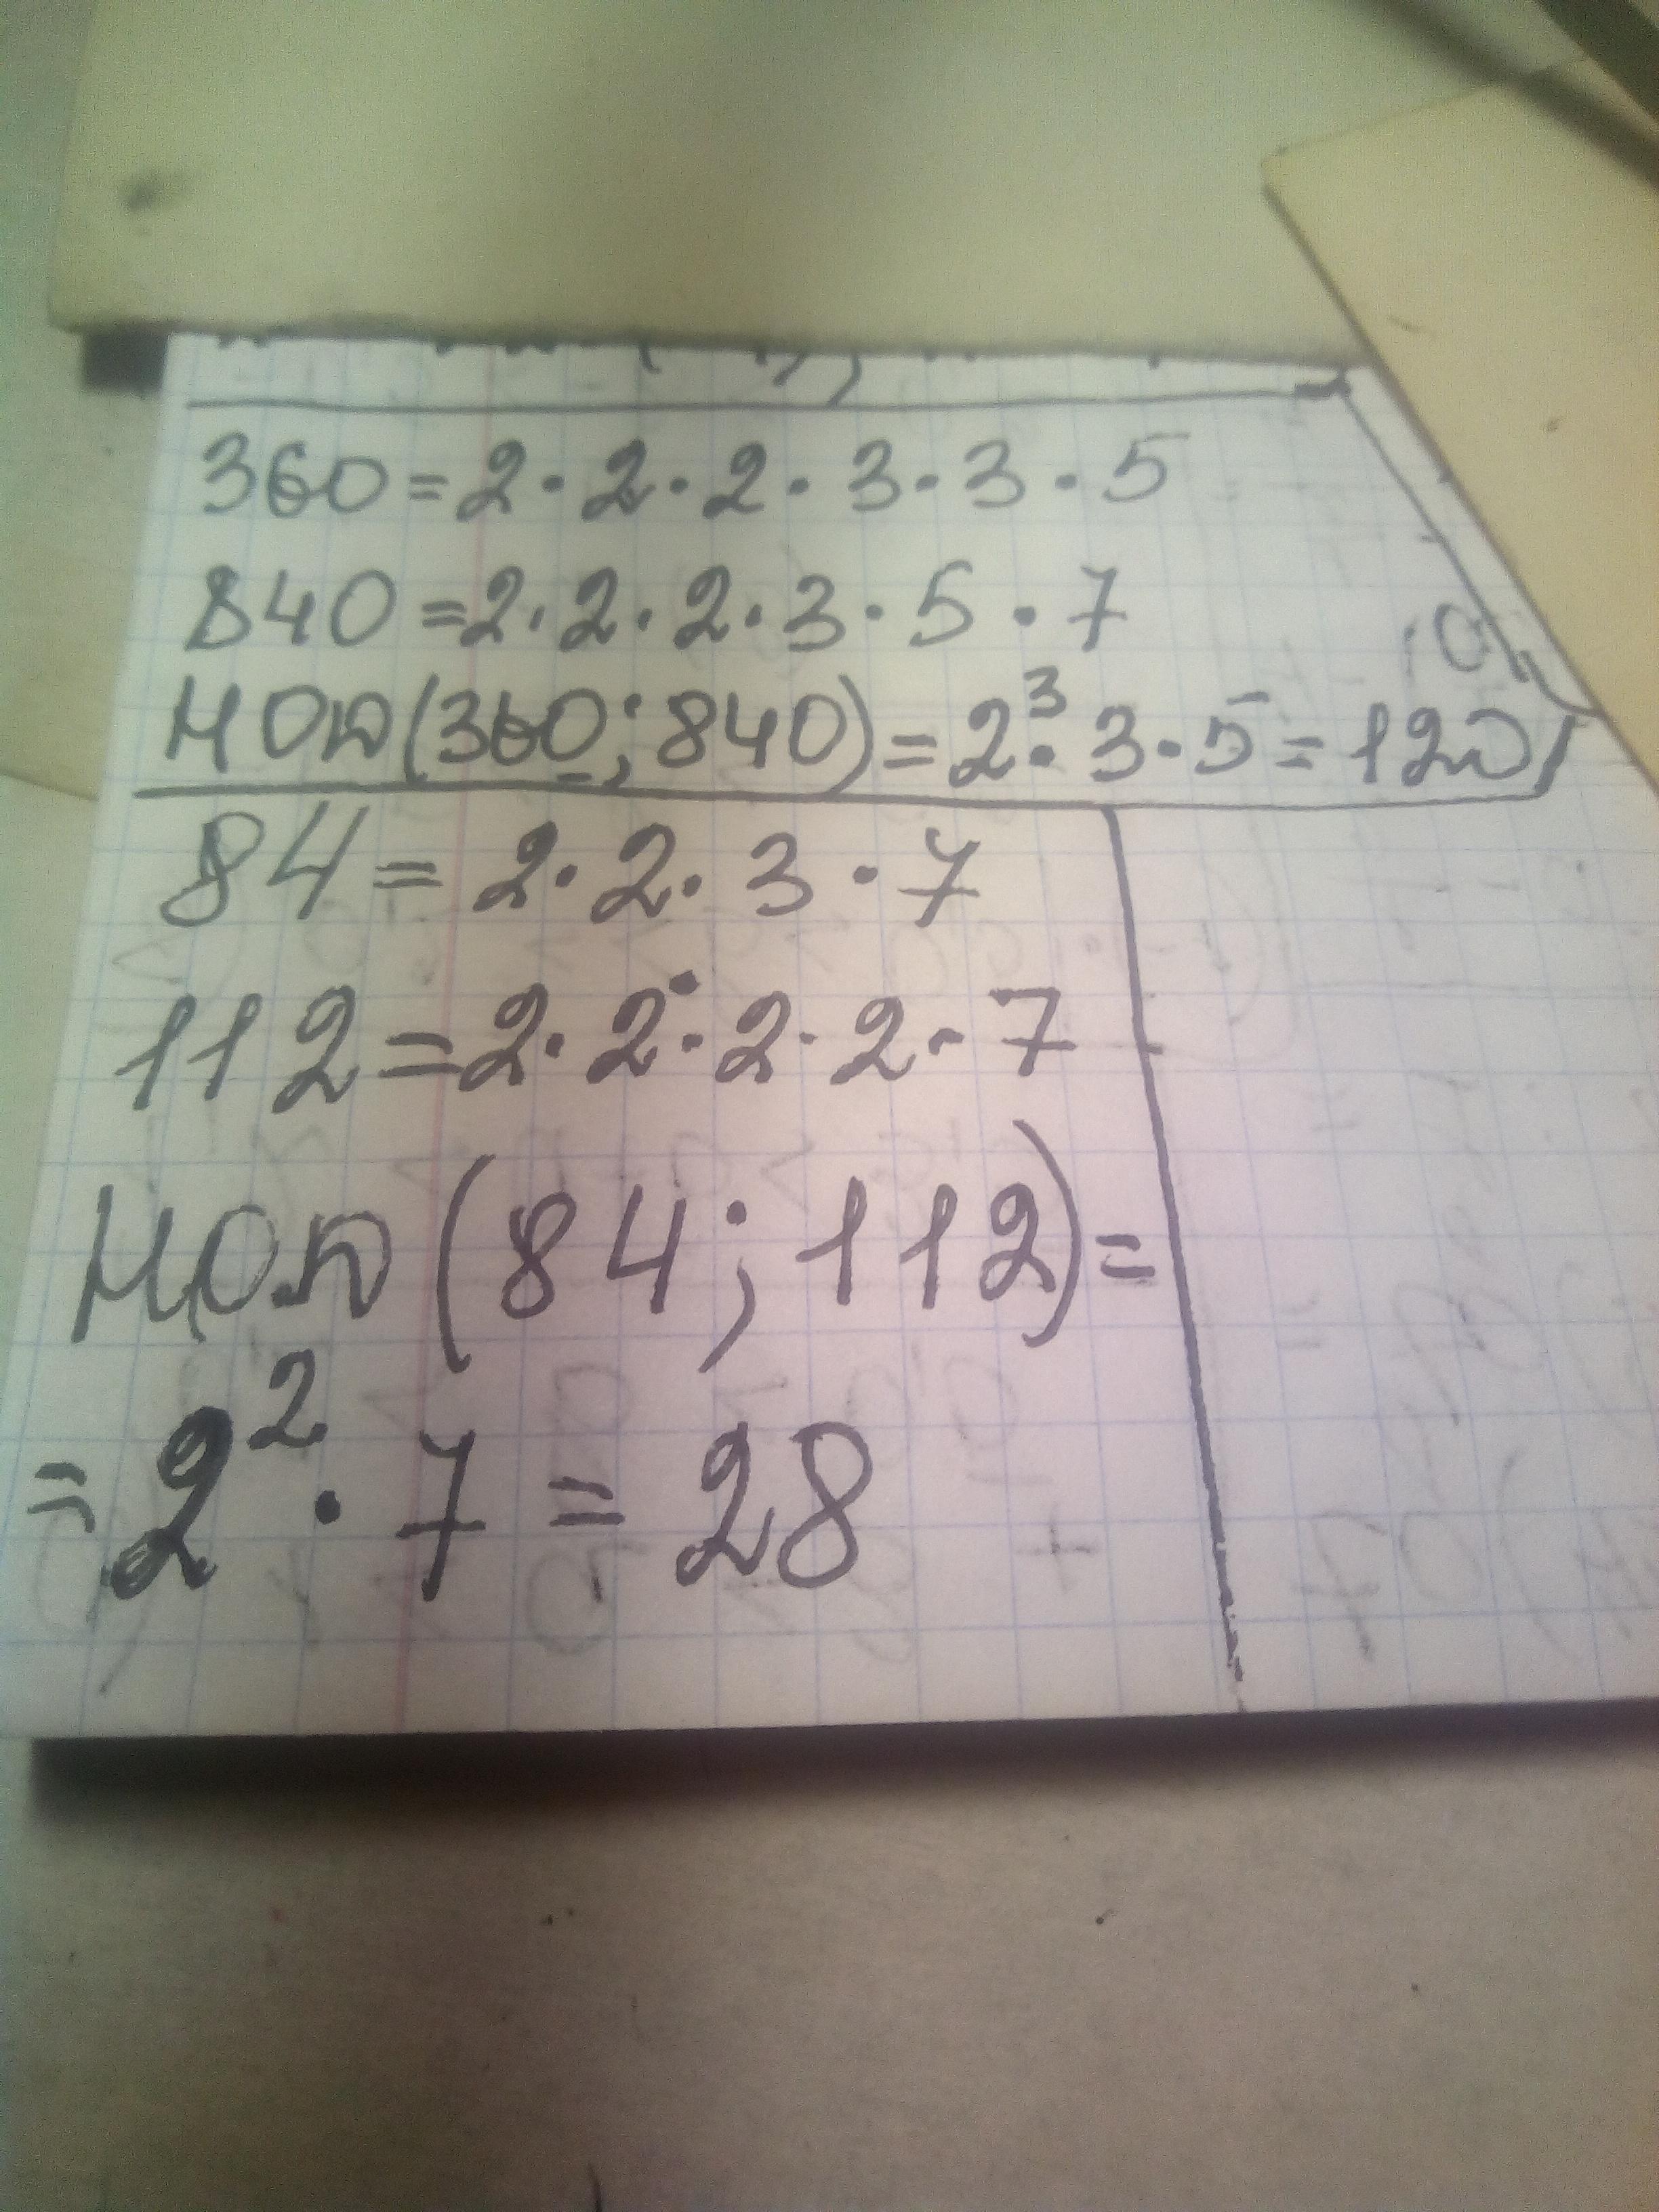 360=2·2·2·3·3·5
840=2·2·2·3·5·7
НОД(360;840)=2³·3·5=120
84=2·2·3·7
112=2·2·2·2·7
НОД(84;112)=
=2²·7=28